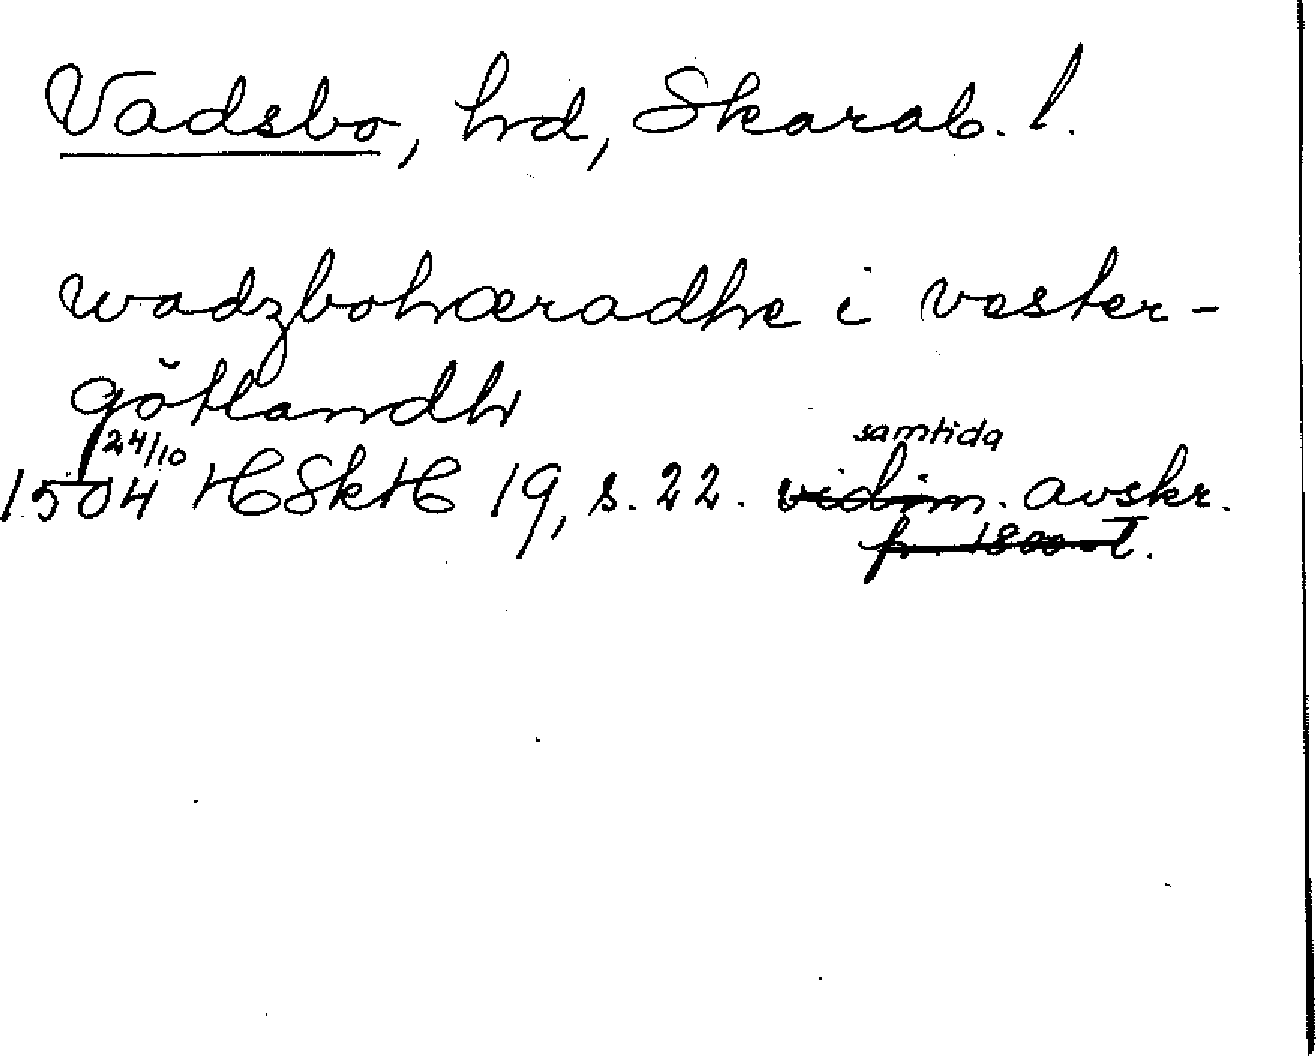 Vadsbo, hd, Skarab. l.
wadzbohæradhe i vester-
götlandh
24/10 samtida
1504 HSkH 19, s. 22. vidim. avskr.
fr. 1800-t.